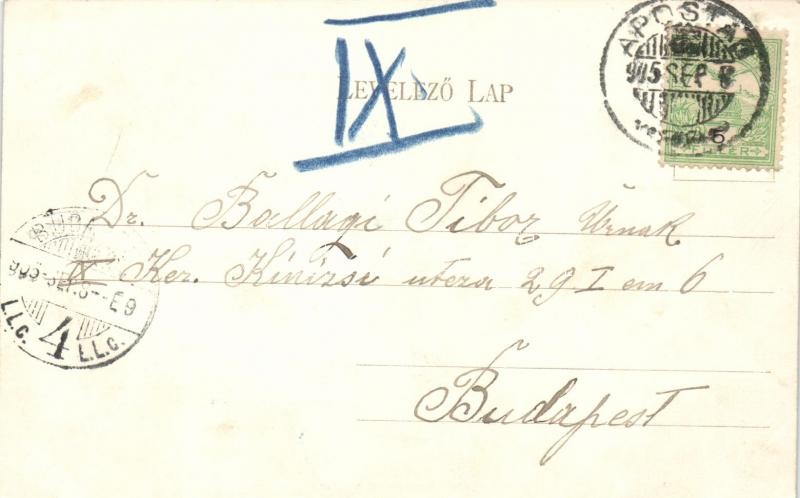 IX
LEVELEZŐ LAP
APOSTAG
905 SEP 6
5
FILLÉR
Dr. Ballagi Tibor Úrnak
IX Ker. Kinizsi utcza 29 I em 6
Budapest
905 SEP. 6 E9
L.L.C. 4 L.L.C.